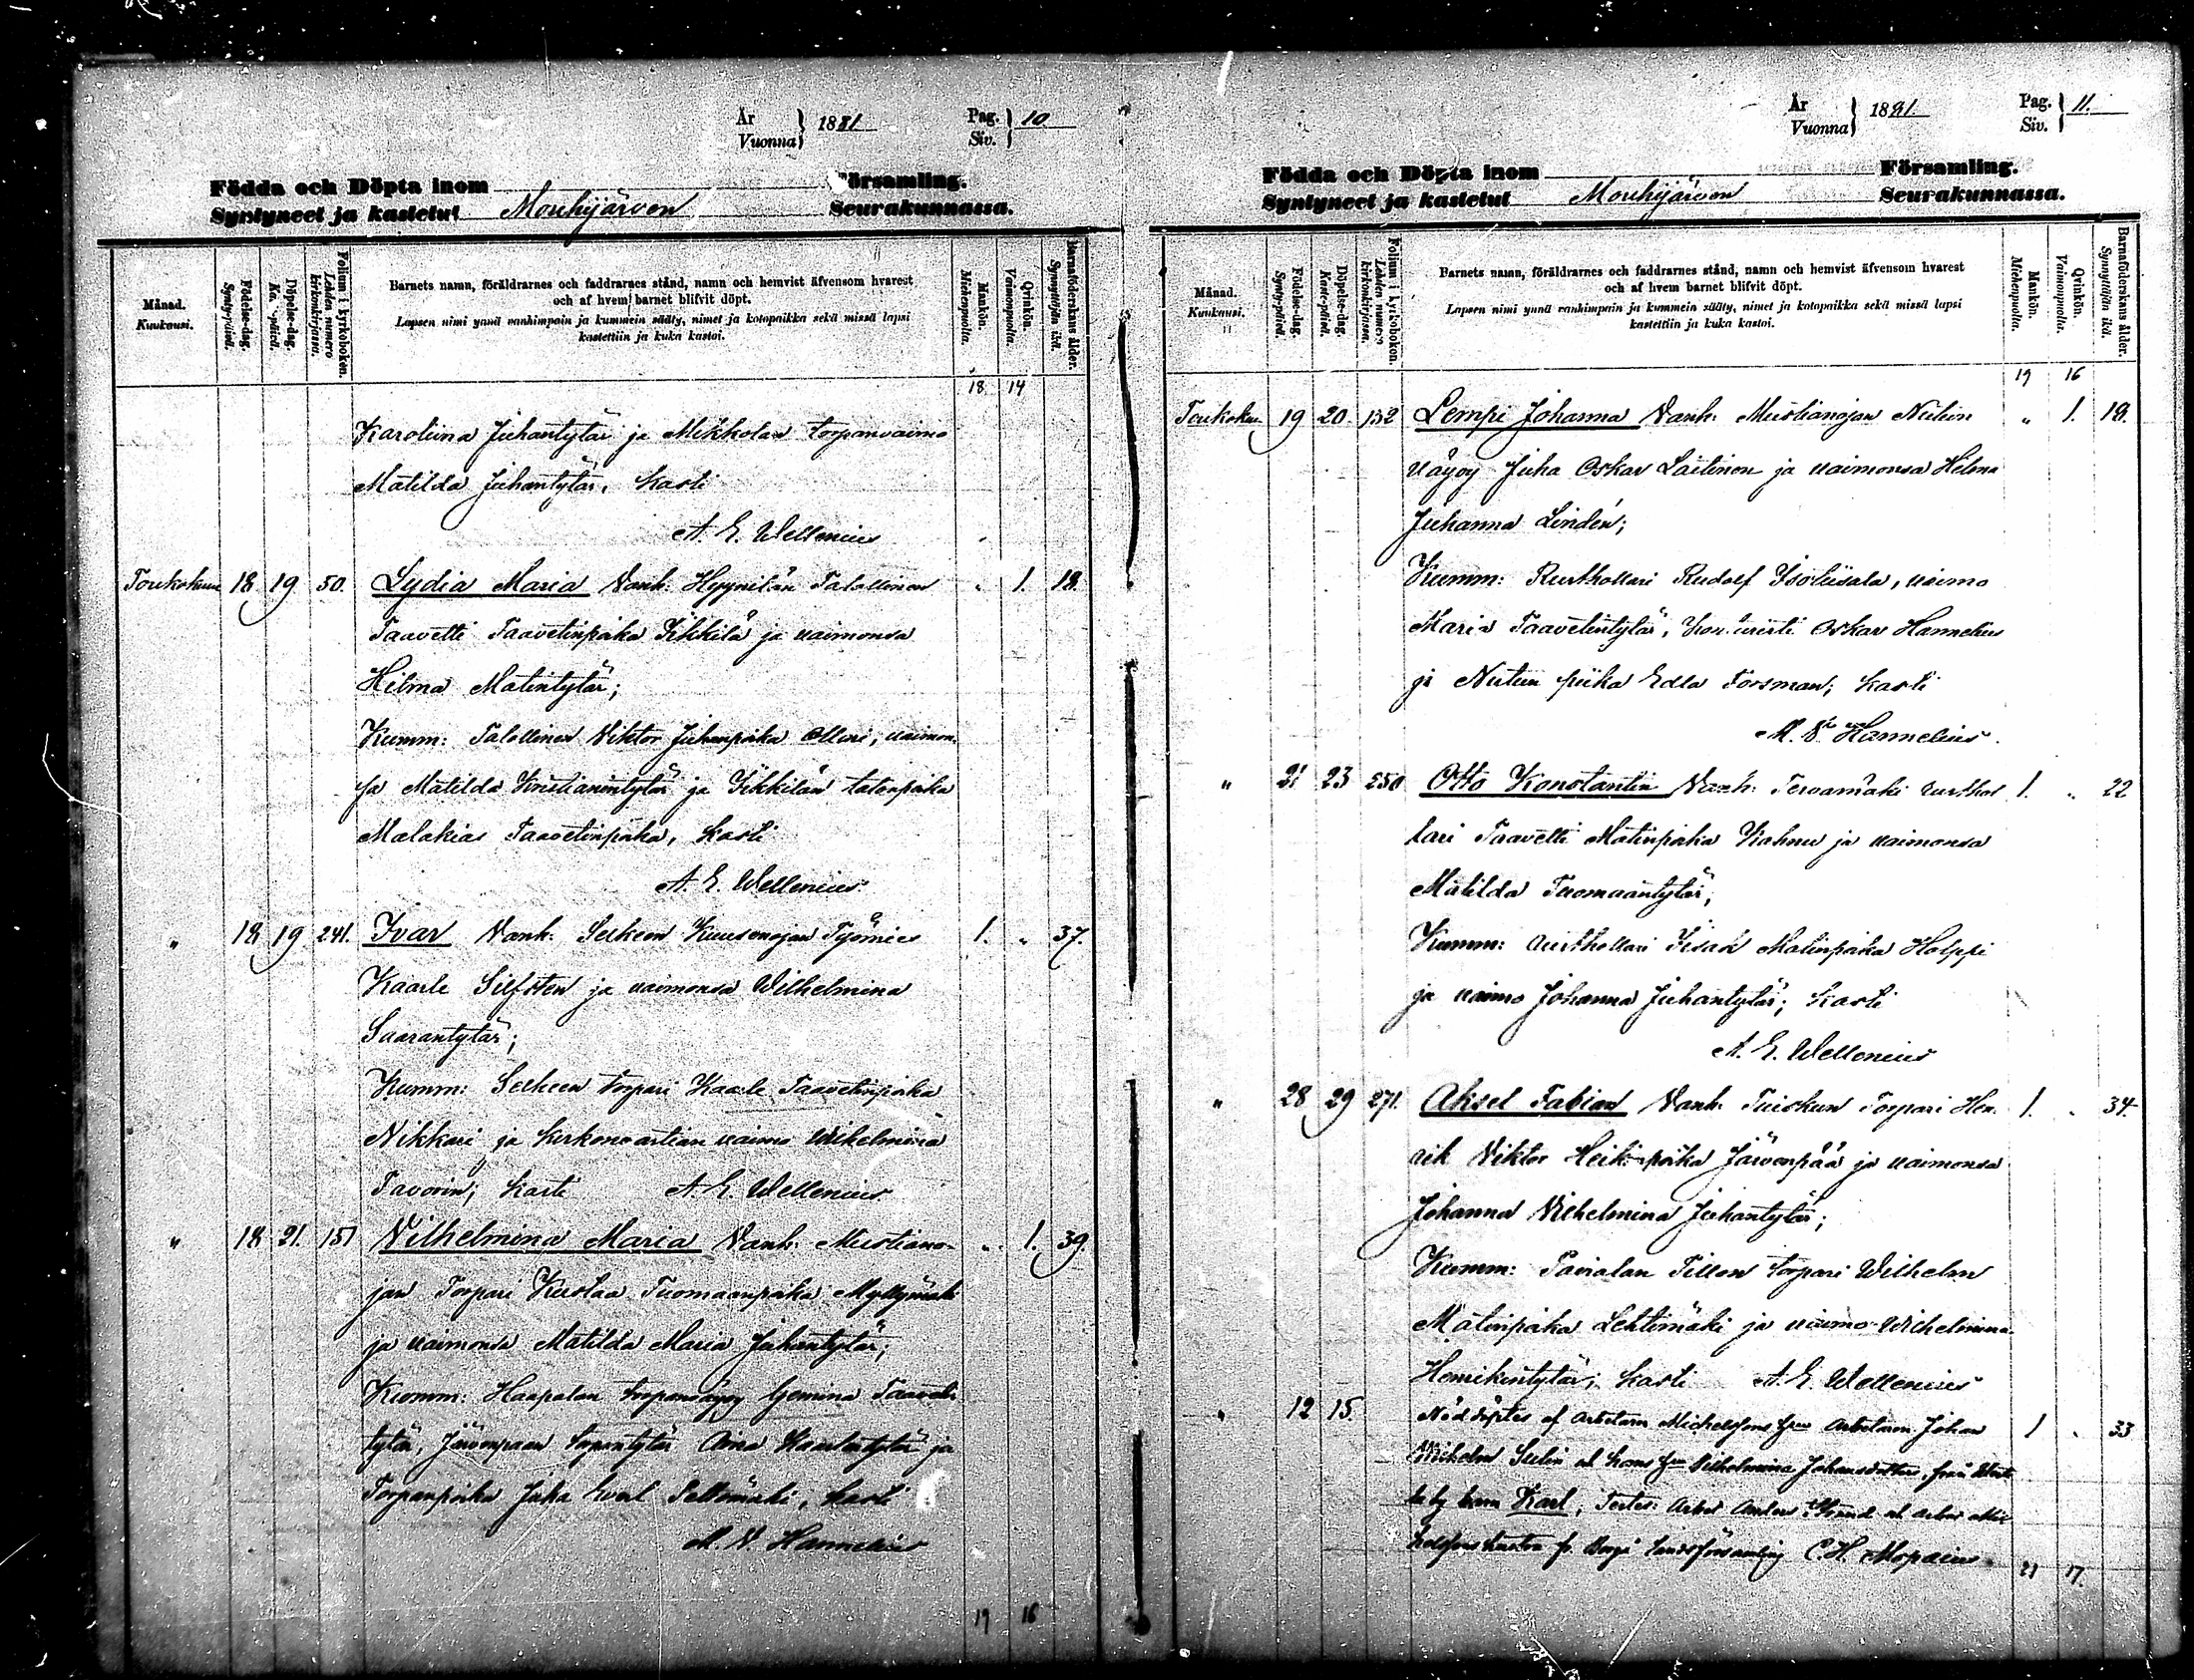 År
Vuonna } 1881
Pag.
Siv. } 10
Födda och Döpta inom Församling.
Syntyneet ja kastetut Mouhijärven Seurakunnassa.
Månad.
Kuukausi.
Födelse-dag.
Synty-päivä.
Döpelse-dag.
Ka -päivä.
Folium i kyrkoboken.
Lehden numero kirkonkirjassa.
Barnets namn, föräldrarnes och faddrarnes stånd, namn och hemvist äfvensom hvarest
och af hvem barnet blifvit döpt.
Lapsen nimi ynnä vanhimpain ja kummein sääty, nimet ja kotopaikka sekä missä lapsi
kastettiin ja kuka kastoi.
Mankön.
Miehenpuolia.
Qvinkön.
Vaimonpuolia.
Barnaföderskans ålder.
Synnyttäjän ikä.
18 14
Karoliina Juhantytär ja Mikkolan torpanvaimo
Matilda Juhantytär, kasti
A. E. Wellenius
Toukokuu 18 19 50. Lydia Maria Vanh: Hyynilän Talollinen „ 1. 18.
Taavetti Taavetinpoika Jikkilä ja vaimonsa
Hilma Matintytär;
Kumm: Talollinen Viktor Juhanpoika Olleni, vaimon-
sa Matilda Kristianintytär ja Jikkilän talonpoika
Malakias Taavetinpoika, kasti
A. E. Wellenius
„ 18 19 241. Ivar Vanh. Selkeen Kuusenojan Työmies 1. „ 37.
Kaarle Silfsten ja vaimonsa Wilhelmina
Saarantytär;
Kumm: Selkeen torpari Kaarle Taavetinpoika
Nikkari ja kirkonvartian vaimo Wilhelmina
Tavorin; kasti A. E. Wellenius
„ 18 21. 151 Vilhelmina Maria Vanh: Mustiano- „ 1. 39.
jan Torpari Kustaa Tuomaanpoika Myllymäki
ja vaimonsa Matilda Maria Juhantytär;
Kumm: Haapalan Gemina Taaveti-
tytär, Järvenpään torparitytär Aina Kaarlentytär ja
Torpanpoika Juha Evert Peltomäki, kasti
M. V. Hannelius
19 16
År
Vuonna } 1881.
Pag.
Siv. } 11.
Födda och Döpta inom Församling.
Syntyneet ja kastetut Mouhijärven Seurakunnassa.
Månad.
Kuukausi.
Födelse-dag.
Synty-päivä.
Döpelse-dag.
Kaste-päivä.
Folium i kyrkoboken.
Lehden numero kirkonkirjassa.
Barnets namn, föräldrarnes och faddrarnes stånd, namn och hemvist äfvensom hvarest
och af hvem barnet blifvit döpt.
Lapsen nimi ynnä vanhimpain ja kummein sääty, nimet ja kotopaikka sekä missä lapsi
kastettiin ja kuka kastoi.
Mankön.
Miehenpuolia.
Qvinkön.
Vaimonpuolia.
Barnaföderskans ålder.
Synnyttäjän ikä.
19 16
Toukokuu 19 20. 132 Lempi Johanna Vanh: Mustianojan Niitun „ 1. 18.
vävyn Juha Oskar Laitinen ja vaimonsa Helena
Juhanna Lindén;
Kumm: Rusthollari Rudolf Isotusala, vaimo
Maria Taavetintytär, Oskar Hannelius
ja Niitun piika Edla Forsman; kasti
M. V. Hannelius.
„ 21 23 250 Otto Konstantin Vanh: Tervamäki rusthol 1. „ 22
lari Taavetti Matinpoika Kahnu ja vaimonsa
Matilda Tuomaantytär;
Kumm: rusthollari Iisak Matinpoika Holppi
ja vaimo Johanna Juhantytär; kasti
A. E. Wellenius
„ 28 29 271. Aksel Fabian Vanh. Tuiskun Torpari Hen- 1. „ 34.
rik Viktor Heikinpoika Järvenpää ja vaimonsa
Johanna Vilhelmina Juhantytär;
Kumm: Tillon torpari Wilhelm
Matinpoika Lehtimäki ja vaimo Wilhelmina
Henrikintytär; kasti A. E. Wellenius
„ 12 15. Nöddöptes af Arbetaren Michelssons fru Arbetaren Johan 1 „ 33
Wilhelm Selin och hans fru Vilhelmina Johansdotter, från
by barn Karl; Testes: Arbet Anders Strand och Arbet Mic
helssons hustru fr. Borgå landsförsamling C. H.
21 17.